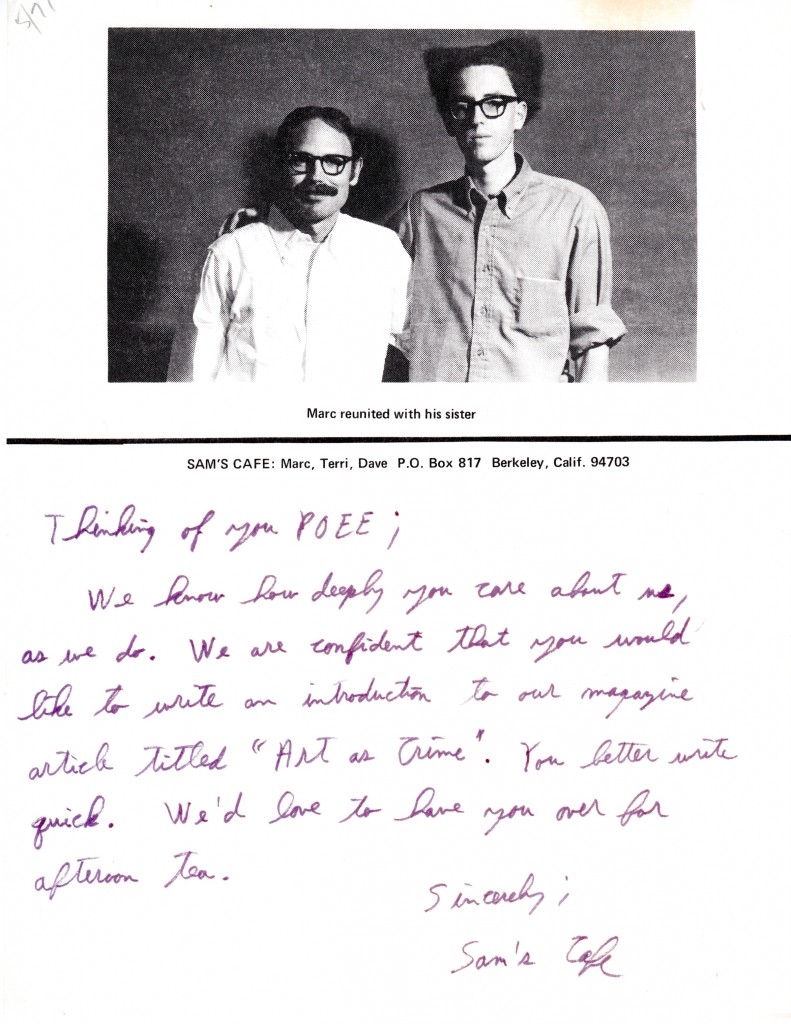 5/71
Marc reunited with his sister
SAM'S CAFE: Marc, Terri, Dave P.O. Box 817 Berkeley, Calif. 94703
Thinking of you POEE;
We know how deeply you care about us,
as we do. We are confident that you would
like to write an introduction to our magazine
article titled "Art as Crime". You better write
quick. We'd love to have you over for
afteroon tea.
Sincerely;
Sam's Cafe